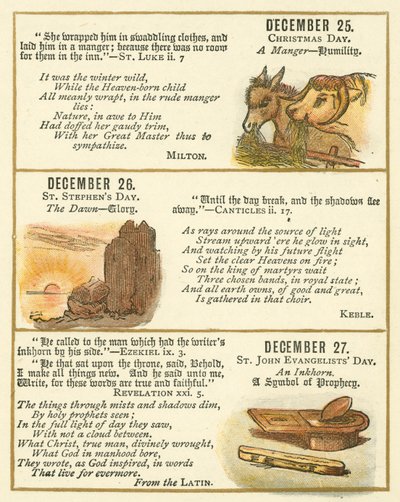 "She wrapped him in swaddling clothes, and
laid him in a manger; because there was no room
for them in the inn."—ST. LUKE ii. 7
It was the winter wild,
While the Heaven-born child
All meanly wrapt, in the rude manger
lies:
Nature, in awe to Him
Had doffed her gaudy trim,
With her Great Master thus to
sympathise.
MILTON.
DECEMBER 25.
CHRISTMAS DAY.
A Manger—Humility.
DECEMBER 26.
ST. STEPHEN'S DAY.
The Dawn—Glory.
"Until the day break, and the shadows flee
away."—CANTICLES ii. 17.
As rays around the source of light
Stream upward 'ere he glow in sight,
And watching by his future flight
Set the clear Heavens on fire;
So on the king of martyrs wait
Three chosen bands, in royal state;
And all earth owns, of good and great,
Is gathered in that choir.
KEBLE.
"He called to the man which had the writer's
inkhorn by his side."—EZEKIEL ix. 3.
"He that sat upon the throne, said, Behold,
I make all things new. And he said unto me,
Write, for these words are true and faithful."
REVELATION xxi. 5.
The things through mists and shadows dim,
By holy prophets seen;
In the full light of day they saw,
With not a cloud between.
What Christ, true man, divinely wrought,
What God in manhood bore,
They wrote, as God inspired, in words
That live for evermore.
From the LATIN.
DECEMBER 27.
ST. JOHN EVANGELISTS' DAY.
An Inkhorn.
A Symbol of Prophecy.